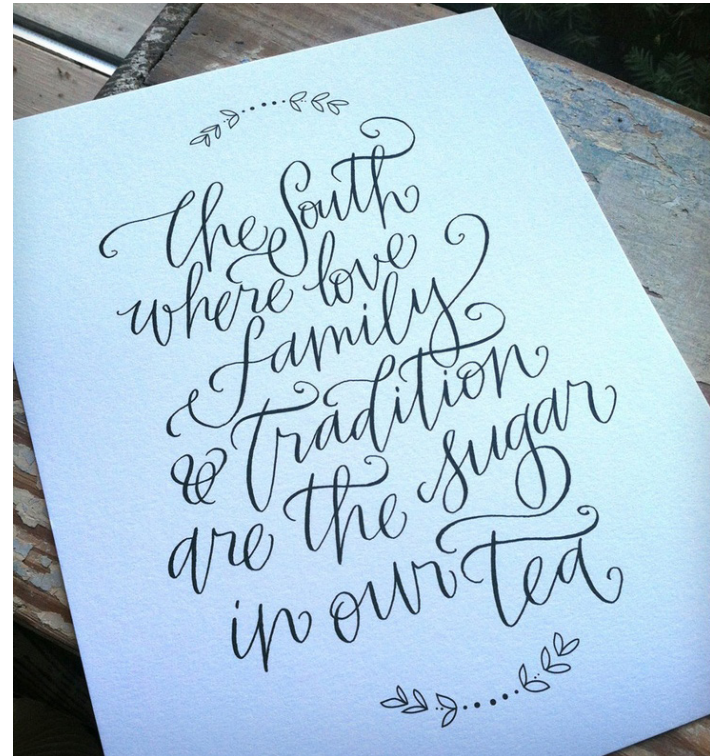 The South
where love
family
& tradition
are the sugar
in our tea